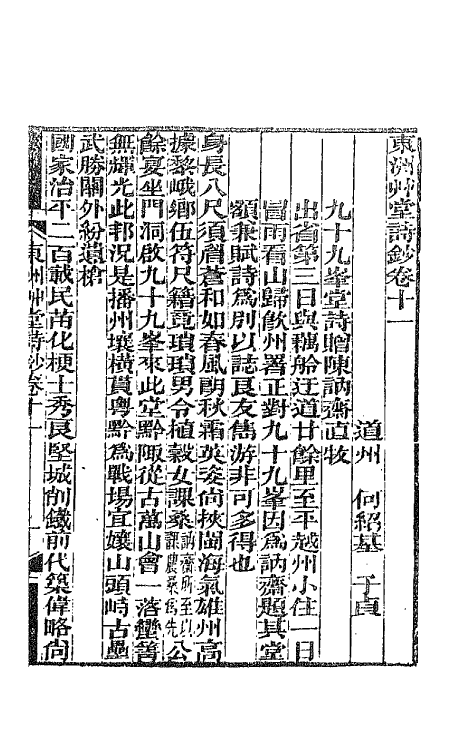 東洲艸堂詩鈔卷十一
道州　何紹基　子貞
九十九峯堂詩贈陳訥齋直牧
出省第三日與耦船迂道廿餘里至平越州小住一日
冒雨看山歸飲州署正對九十九峯因爲訥齋題其堂
額兼賦詩爲別以誌良友雋游非可多得也
身長八尺須眉蒼和如春風朗秋霜英姿尙挾閩海氣雄州高
據黎峨鄉伍符尺籍竟瑣瑣男令植穀女課桑訥齋所至以課農桑爲先公
餘夏坐門洞啟九十九峯來此堂黔陬從古萬山會一落蠻箐
無輝光此邦況是播州壤橫貫粵黔爲戰場宜孃山頭峙古壘
武勝關外紛遺槍
國家治平二百載民苗化梗士秀良堅城削鐵前代築偉略尙
東洲艸堂詩鈔卷十一